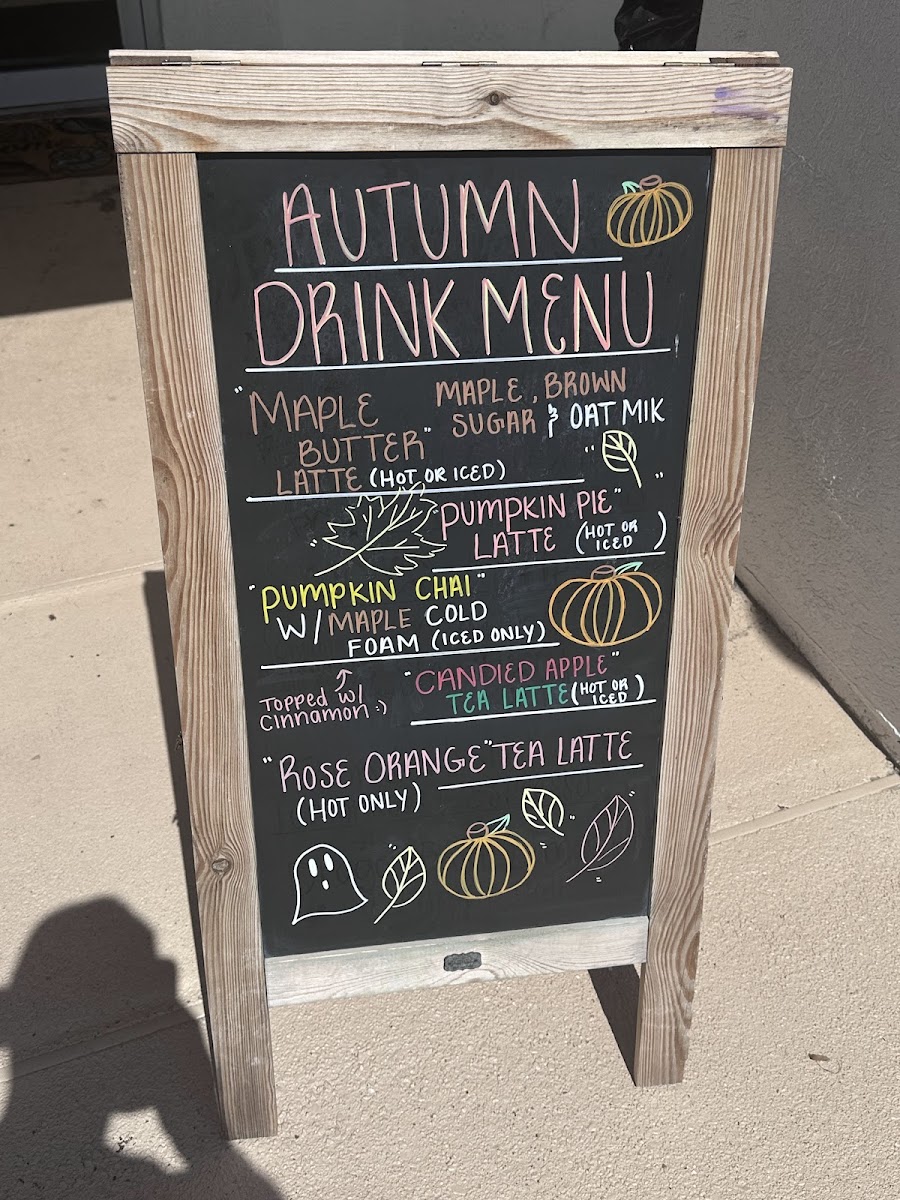 AUTUMN
DRINK MENU
"MAPLE
BUTTER"
LATTE (HOT OR ICED)
MAPLE, BROWN
SUGAR & OAT MIK
"PUMPKIN PIE"
LATTE (HOT OR
ICED)
"PUMPKIN CHAI"
W/MAPLE COLD
FOAM (ICED ONLY)
TOPPED W/
CINNAMON :)
"CANDIED APPLE"
TEA LATTE (HOT OR
ICED)
"ROSE ORANGE" TEA LATTE
(HOT ONLY)